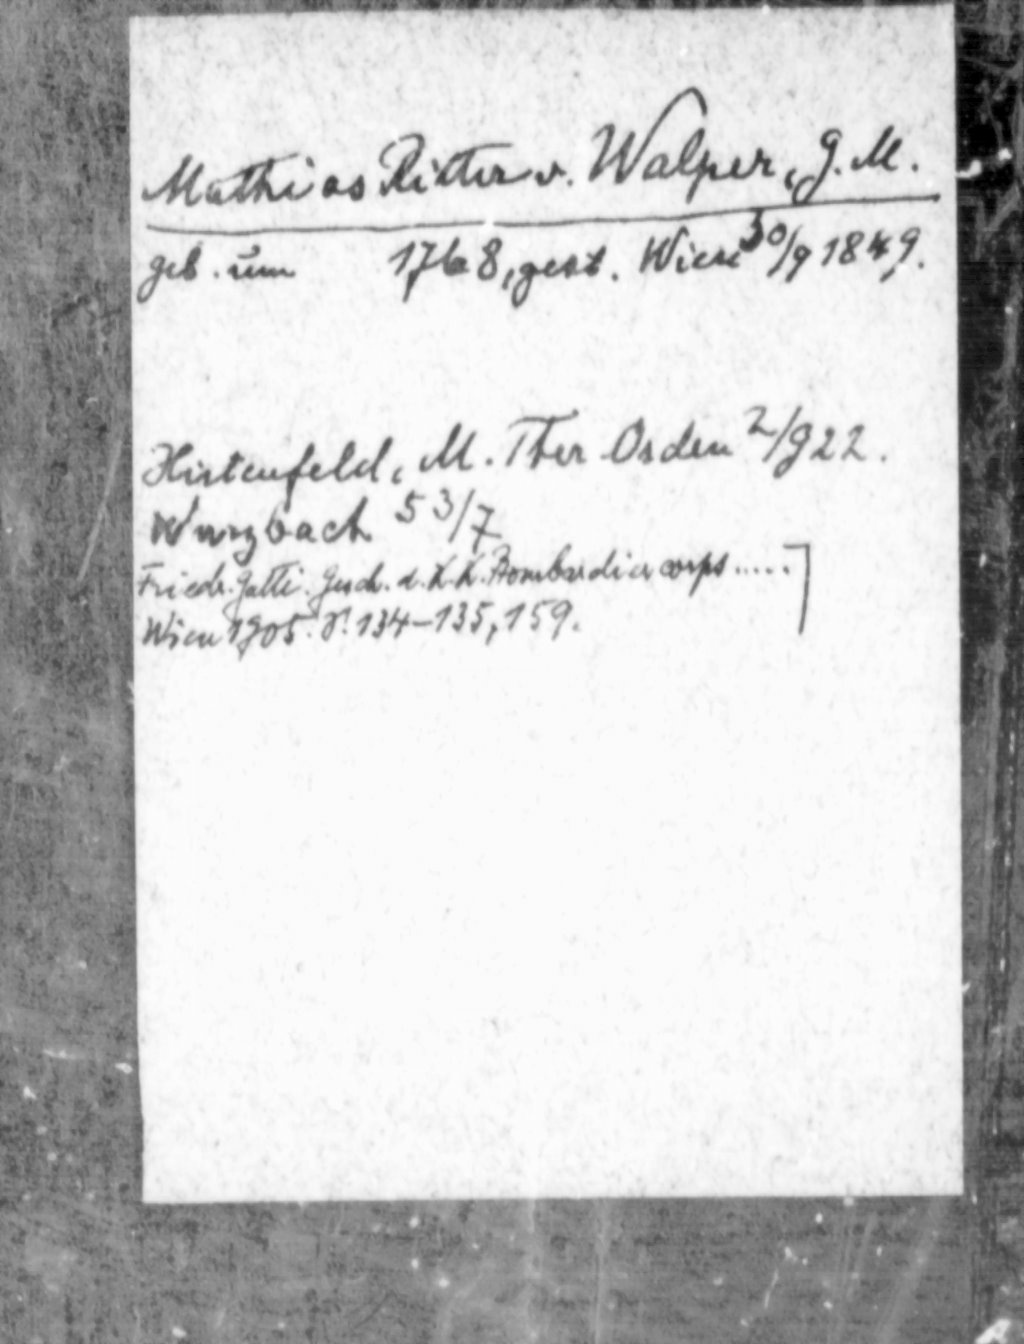 Mathias Ritter v. Walper, G. M.
geb. um 1768, gest. Wien 30/9 1849.
Hirtenfeld, M. Ther Orden 2/922.
Wurzbach 53/7
Friedr. Gatti. Gesch. d. K. K. Bombardiercorps.....
Wien 1905. S. 134–135, 159.